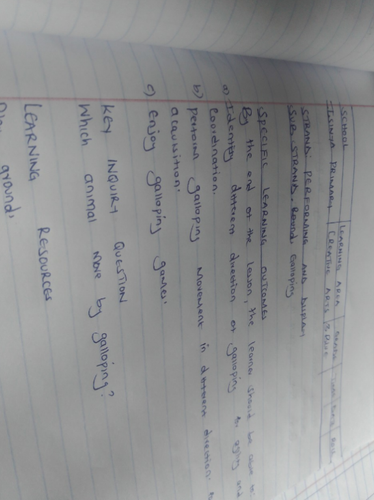 SCHOOL LEARNING AREA GRADE
PRIMARY CREATIVE ARTS
STRAND: PERFORMING AND DISPLAY
SUB STRAND:
SPECIFIC LEARNING OUTCOMES
By the end of the lesson, the learner should be
a) Identify different direction of galloping for agility and
Coordination.
b) Perform galloping movement in different direction
acquisition.
c) Enjoy galloping games.
KEY INQUIRY QUESTION
Which animal move by galloping?
LEARNING RESOURCES
ground,